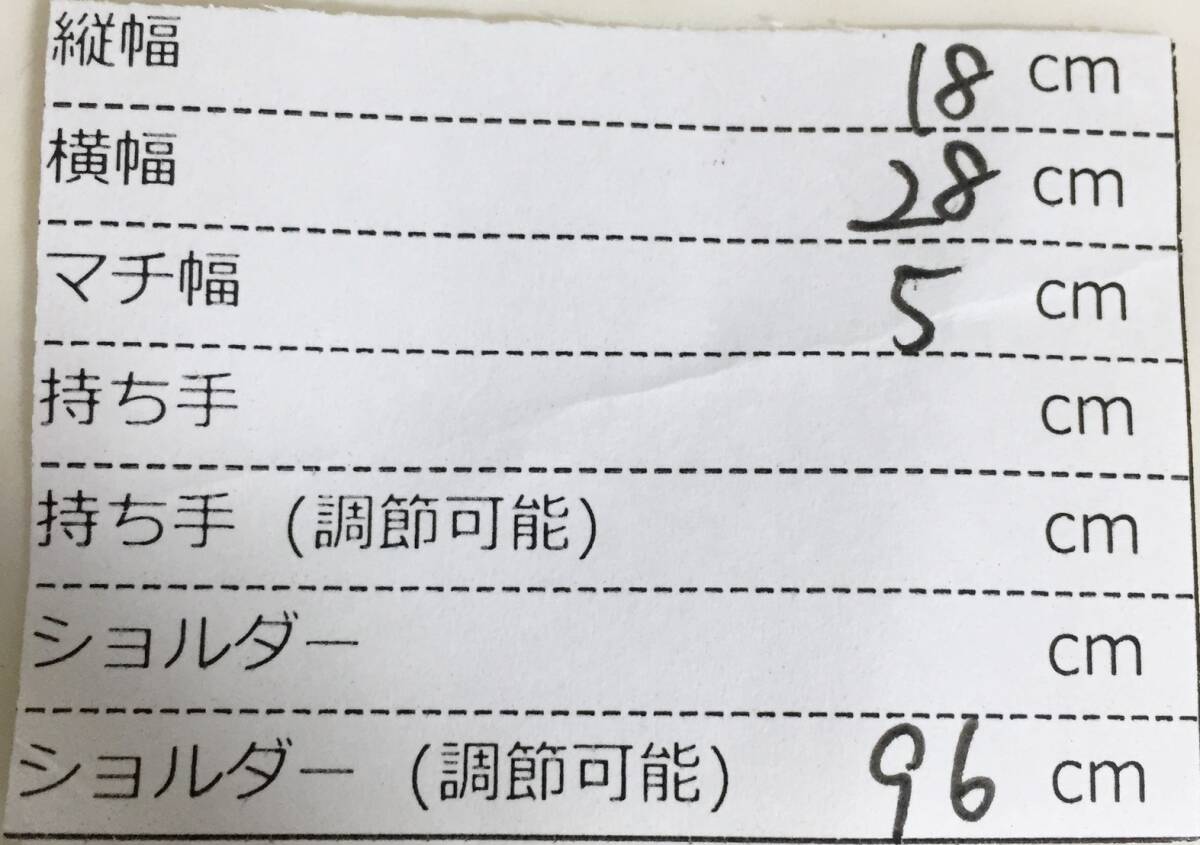 縦幅 18 cm
横幅 28 cm
マチ幅 5 cm
持ち手 cm
持ち手 (調節可能) cm
ショルダー cm
ショルダー (調節可能) 96 cm